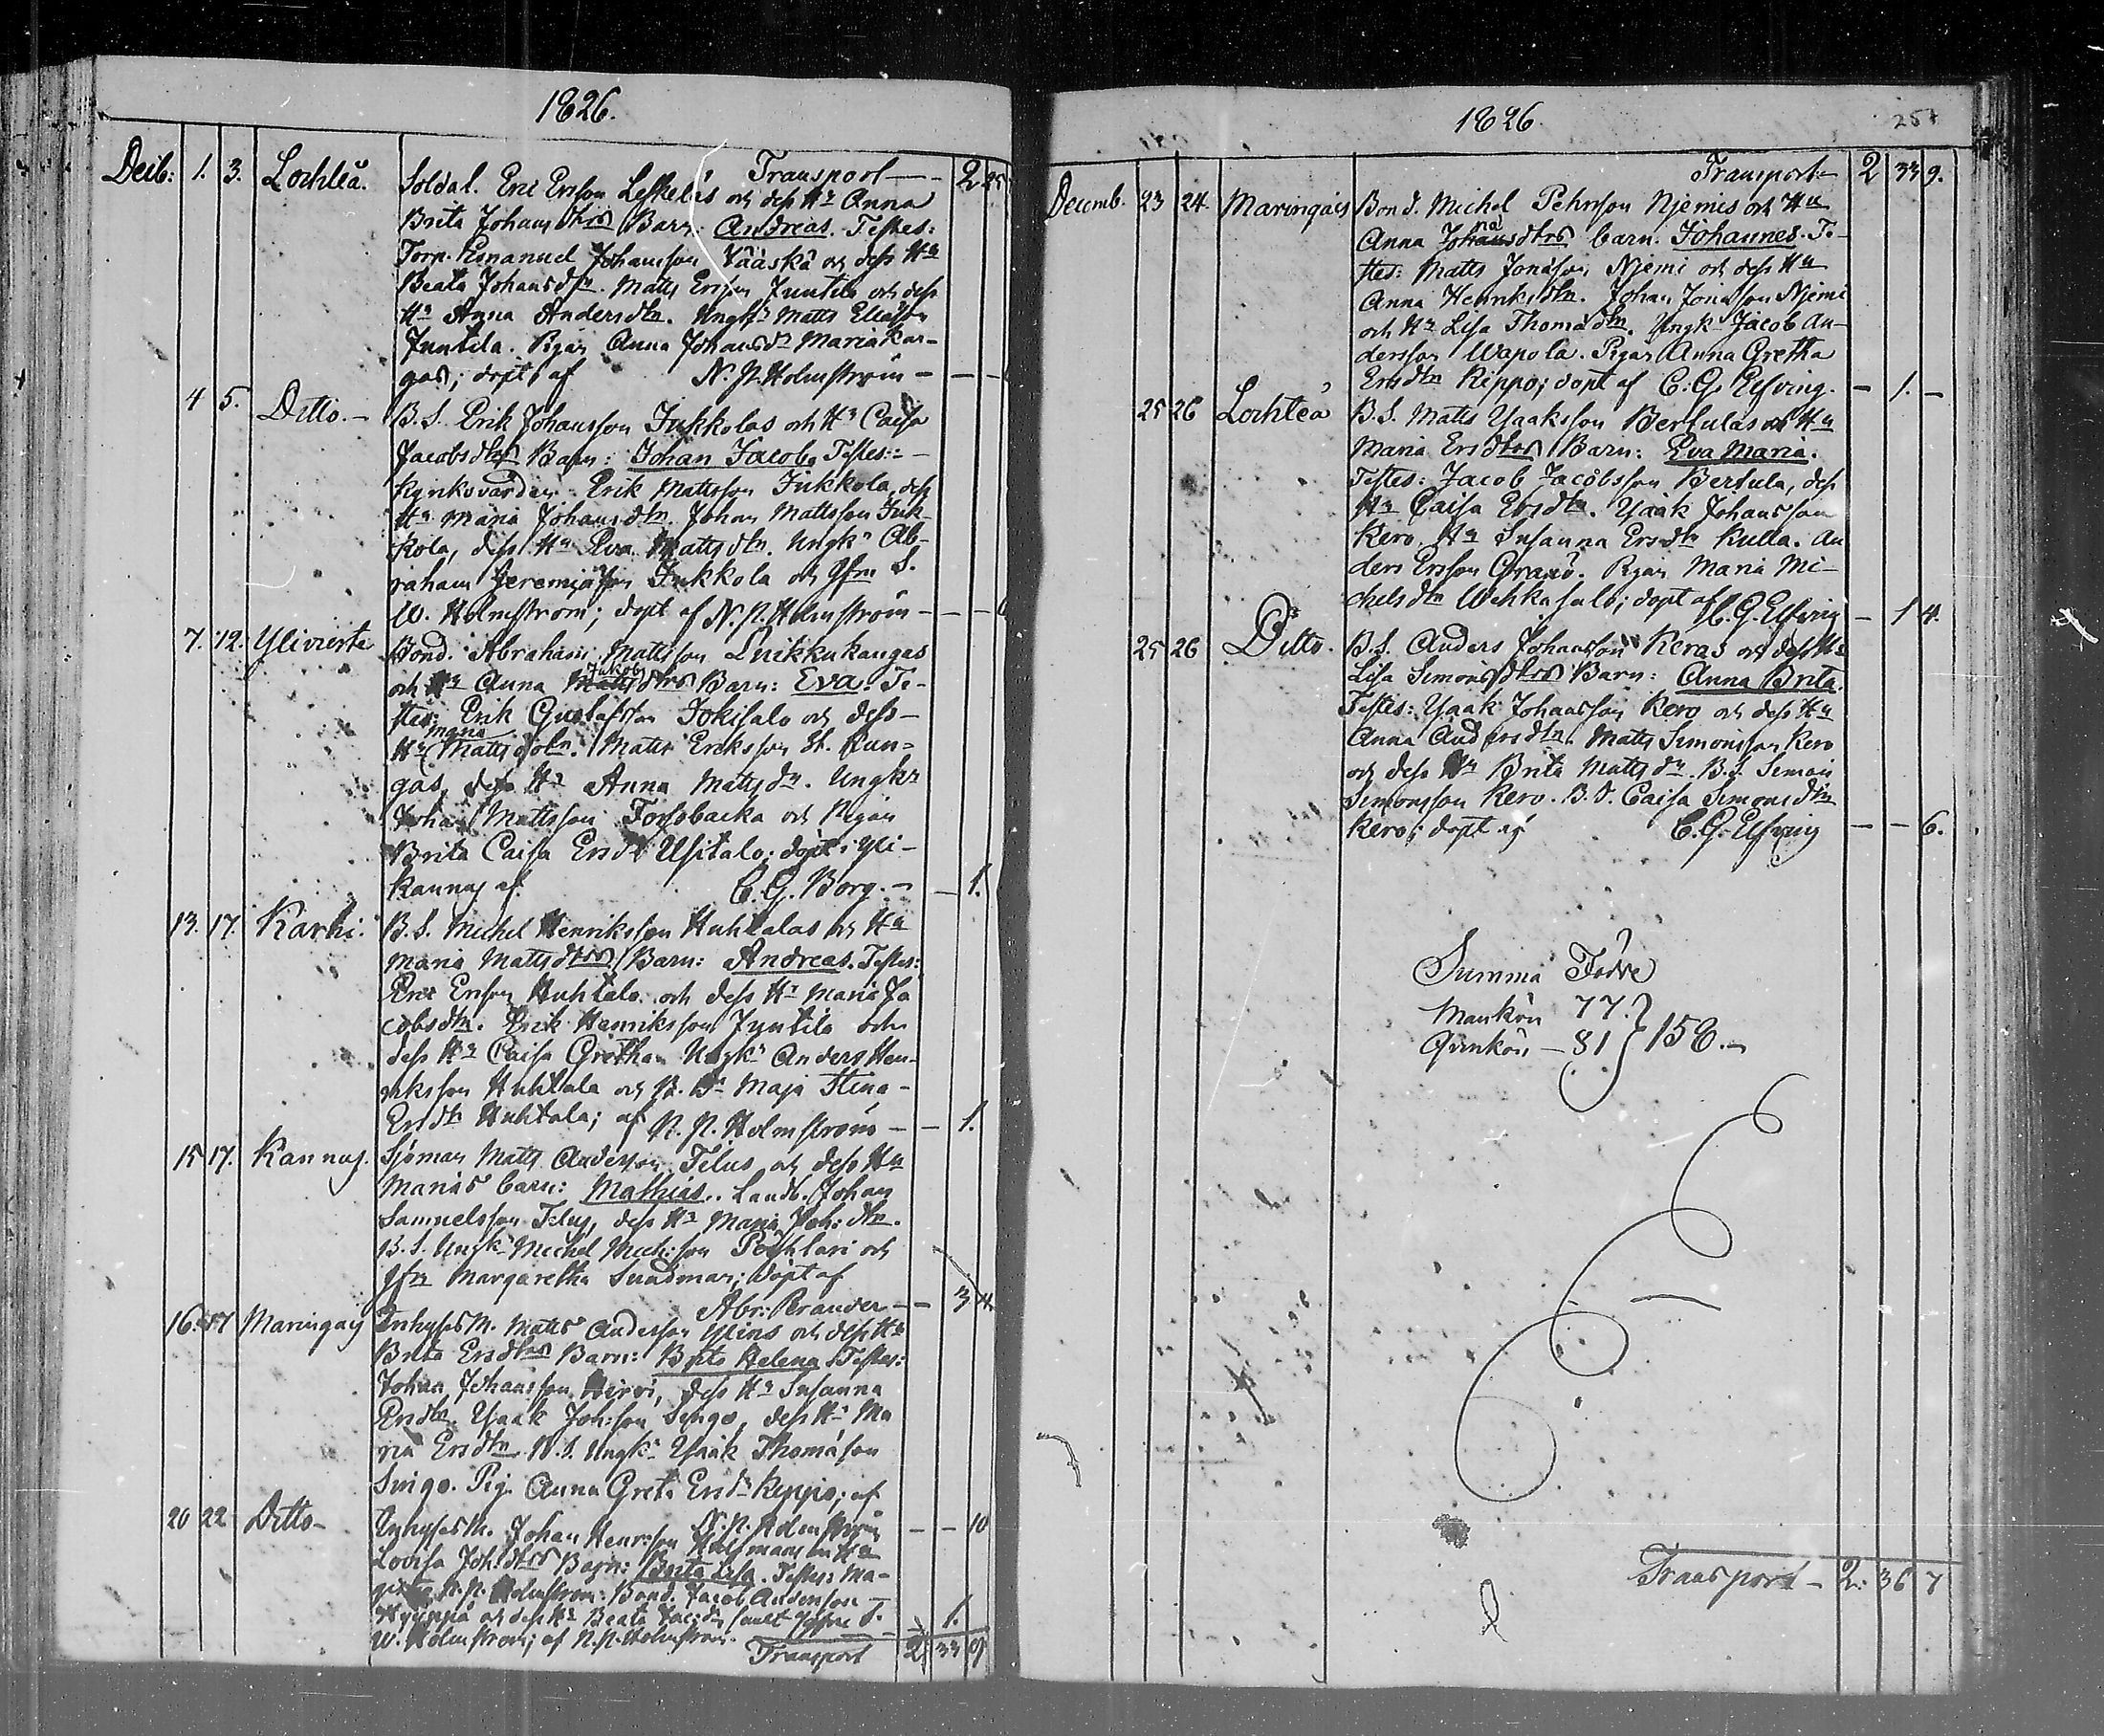 1826.
Transport — 2 25
Decb: 1. 3. Lochteå. Soldat. Eric Ersson Leskeläs och dess Hu Anna
Brita Johansdtrs Barn: Andreas. Testes:
Torp. Emanuel Johansson Vääskä och dess Hu
Beata Johansdtr. Matts Ersson Juntila och dess
Hu Anna Andersdtn. Ungkn Matts Eliasson
Juntila. Pigan Anna Johansdr Mariakan-
gas; döpt af N. P. Holmström —
4 5. Ditto. — B. S. Erik Johansson Jukkolas och Hu Caisa
Jacobsdtrs Barn: Johan Jacob, Testes: —
Kyrkovärden Erik Mattsson Jukkola, dess
Hu Maria Johansdtn. Johan Mattsson Juk-
kola, dess Hu Eva Mattsdtn. Ungkn Ab-
raham Jeremiasson Jukkola och Jfrn S.
W. Holmström; döpt af N. P. Holmström —
7. 12. Ylivieska Bond. Abraham Mattsson Knikkukangas
och Hu Anna Matts Jakob dtrs Barn: Eva. Te-
stes: Erik Gustafsson Jokisalo och dess —
Hu Maria Mattsdotn. Matts Eriksson St. Kan-
gas, dess Hu Anna Mattsdr. Ungkn
Johan Mattsson Forsbacka och Pigan
Brita Caisa Ersdr Ylitalo; döpt i Yli-
kannus af C. G. Borg. — — 1.
13. 17. Karhi. B. S. Michel Henriksson Huhtalas och Hu
Maria Mattsdtrs Barn: Andreas. Testes:
Eric Ersson Huhtala och dess Hu Maria Ja
cobsdtn. Erik Henriksson Juntila och
dess Hu Caisa Gretha. Ungkn Anders Hen-
riksson Huhtala och B. Dr Maja Stina —
Ersdtn Huhtala; af N. P. Holmström — — 1.
15 17. Kannus. Sjöman Matts Andersson Tilus och dess Hu
Marias barn: Mathias. Landb. Johan
Samuelsson Tilus, dess Hu Maria Joh: dtn.
B. S. Ungkn Michel Mich:son Pöyhtari och
Jfrn Margaretha Sundman; döpt af
Abr: Perander — — 3 4.
16. 17 Maringais Inhyses M. Matts Andersson Ylins och dess Hu
Brita Ersdtrs Barn: Brita Helena. Testes:
Johan Johansson Hirvi, dess Hu Susanna
Ersdtn. Ysaak Joh:son Singo, dess Hu Ma
ria Ersdtn. B. S. Ungkn Ysaak Thomasson
Singo. Pig. Anna Greta Ersdr Keppo; af
N. P. Holmström — — 10
20 22 Ditto — Inhyses M. Johan Henr:sson Huismans och Hu
Lovisa Joh:dtrs Barn: Brita Lisa. Testes: Ma-
gister N. P. Holmström. Bond. Jacob Andersson
Hyyppä och dess Hu Beata Jac:dr samt Jgfru S.
W. Holmström; af N. P. Holmström. 1.
Transport 2 33 9
1826.
257
Transport — 2 33 9.
Decemb. 23 24. Maringais Bond. Michel Pehrsson Njemis och Hu
Anna Johansdtrs barn. Johannes. Te-
stes: Matts Jonasson Njemi och dess Hu
Anna Henriksdtn. Johan Jonasson Njemi
och Hu Lisa Thomasdtn. Ungk. Jacob An-
dersson Wapola. Pigan Anna Gretha
Ersdtn Kippo; döpt af C. G. Elfving. — 1. —
25 26 Lochteå B. S. Matts Ysaaksson Bertulas och Hu
Maria Ersdtrs Barn: Eva Maria.
Testes: Jacob Jacobsson Bertula, dess
Hu Caisa Ersdtn. Ysaak Johansson
Kero. Hu Susanna Ersdtn Kulla. An
ders Ersson Granö. Pigan Maria Mi-
chelsdtn Wehkasalo; döpt af C. G. Elfving — 1 4.
25 26 Ditto. B. S. Anders Johansson Keros och dess Hu
Lisa Simonsdtrs Barn: Anna Brita.
Testes: Ysaak Johansson Kero och dess Hu
Anna Andersdtn. Matts Simonsson Kero
och dess Hu Brita Mattsdr. B. S. Simon
Simonsson Kero. B. D. Caisa Simonsdtn
Kero; döpt af C. G. Elfving — — 6.
Summa Födde
Mankön 77.
Qvinkön — 81 } 158. —
Transport — 2: 36 7